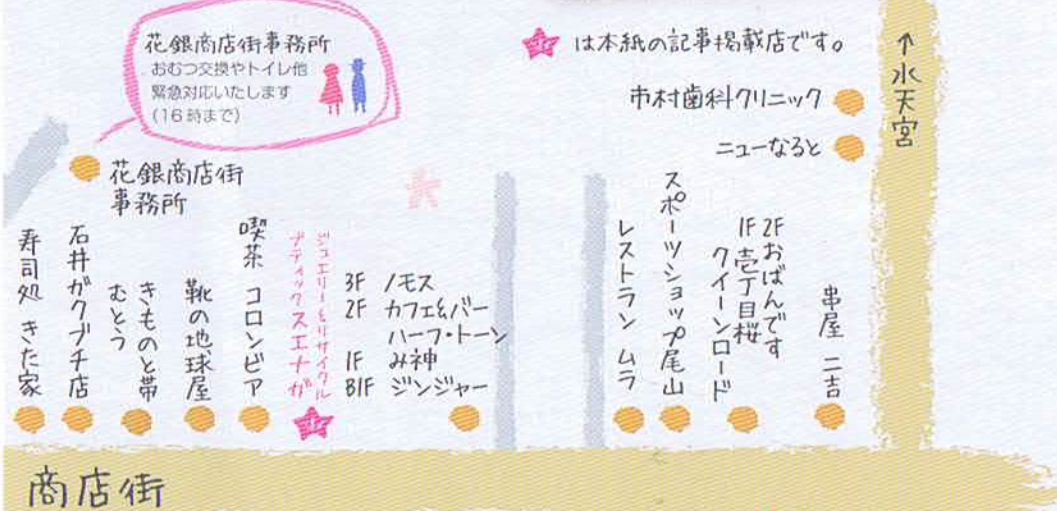 花銀商店街事務所
おむつ交換やトイレ他
緊急対応いたします
(16時まで)
は本紙の記事掲載店です。
↑水天宮
市村歯科クリニック
ニューなると
花銀商店街
事務所
寿司処 きた家
石井ガクブチ店
きものと帯
むとう
靴の地球屋
喫茶 コロンビア
ジュエリー&リサイクル
ブティックスエナガ
3F ノモス
2F カフェ&バー
ハーフ・トーン
1F み神
B1F ジンジャー
レストラン ムラ
スポーツショップ尾山
2Fおばんです
1F壱丁目桜
クイーンロード
串屋 二吉
商店街